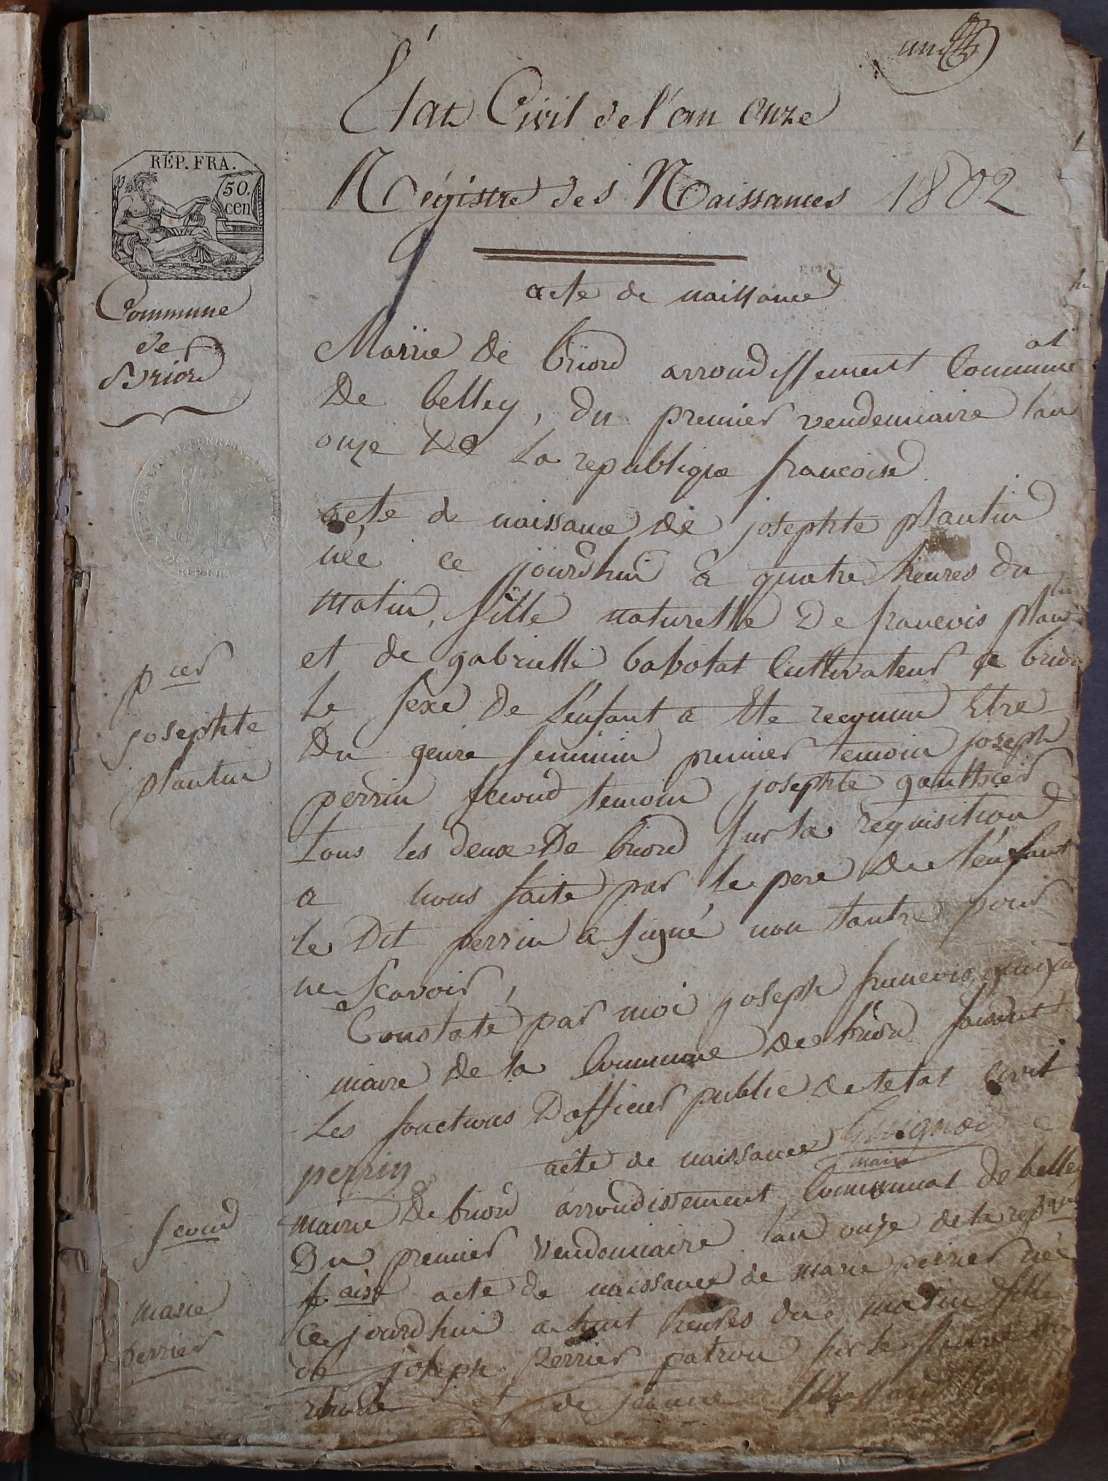 État Civil de l'an onze
Régistre des Naissances 1802
RÉP. FRA.
50.
cen
Commune
de
Briord
acte de naissance
Mairie de briord arrondissement Communal
De belley, du premier vendemiaire lan
onze de La republique francoise
acte de naissance de josephte plantin
née ce jourdhui à quatre heures du
matin, fille naturelle De francois plantin
et de gabrielle babolat Cultivateur de briord
Le sexe De l'enfant a ete reconnu Etre
Du genre feminin premier temoin joseph
perrin second temoin josephte gauthier
tous les deux De briord sur la requisition
a nous faite par le pere De l'enfant
le Dit perrin a signé non lautre pour
ne scavoir,
Constaté par moi joseph francois
maire de la Commune De briord faisant
Les fonctions Dofficier public de letat civil
perrin acte de naissance
maire
pier
josephte
plantin
mairie De briord arrondissement Communal de belley
Du premier vendemiaire lan onze de la repque
f aise acte de naissance de marie perrier née
ce jourdhui a huit heures du matin fille
de joseph perrier patron sur le fleuve du
rhone et de jeanne
second
marie
perrier